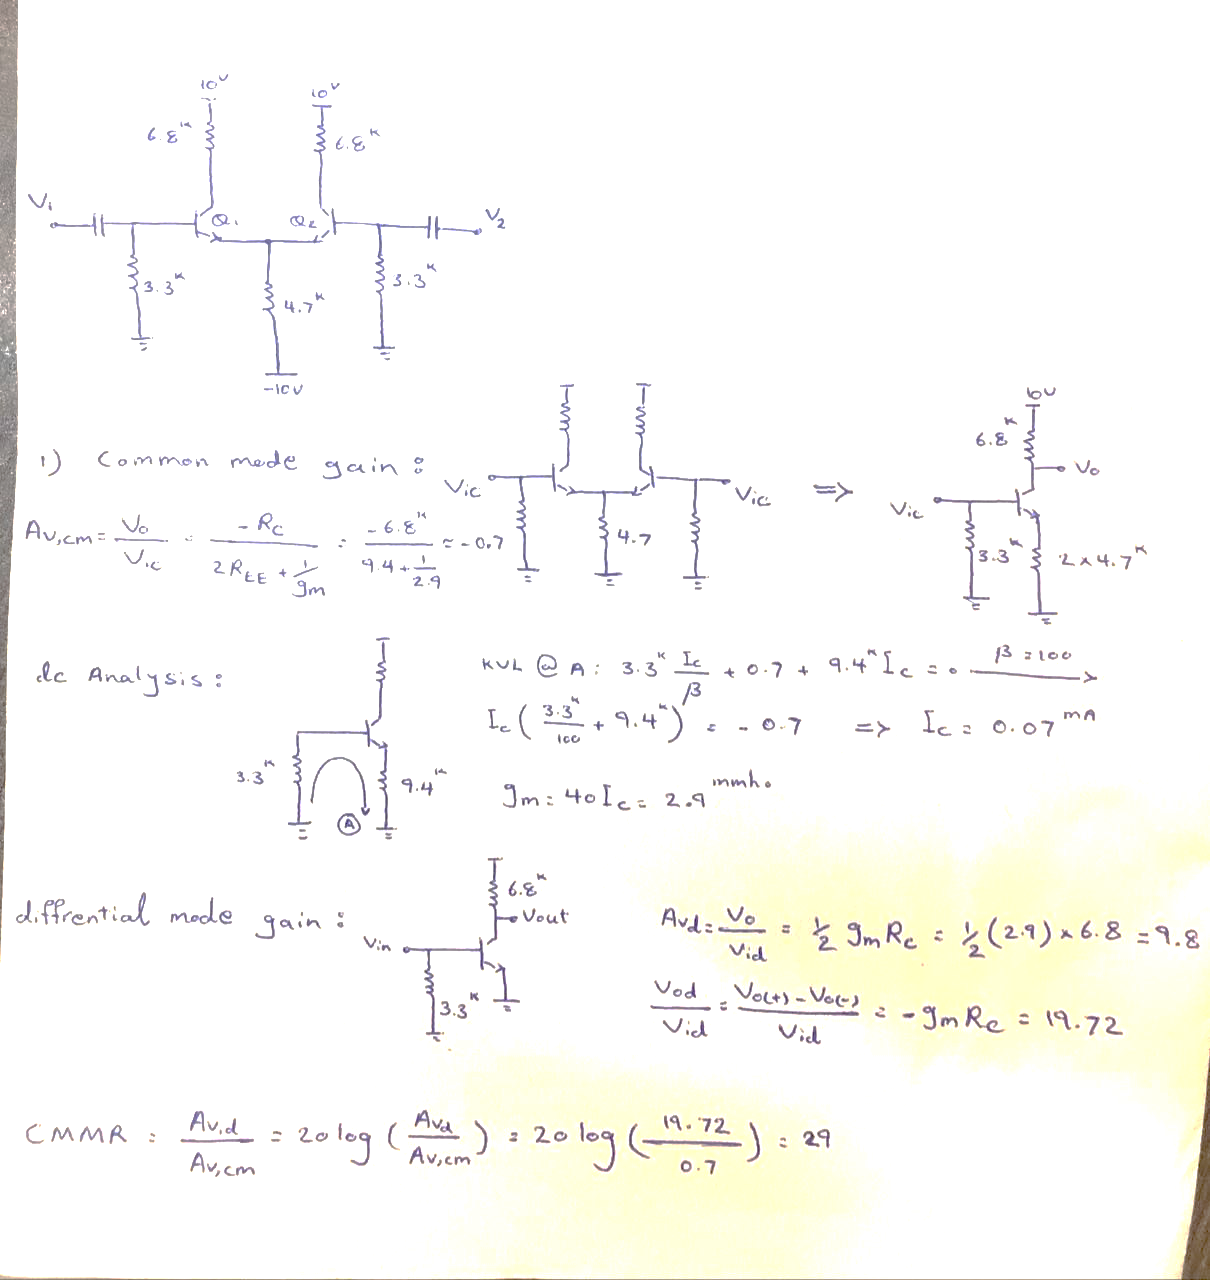 10V 10V
6.8K 6.8K
V1 Q1 Q2 V2
3.3K 4.7K 3.3K
-10V
1) Common mode gain :
Vic Vic => Vic
10V
6.8K
Vo
4.7 3.3K 2x4.7K
Av,cm = Vo/Vic = -Rc/(2REE + 1/gm) = -6.8K/(9.4 + 1/2.9) ≈ -0.7
dc Analysis :
3.3K 9.4K A
KVL @ A : 3.3K Ic/β + 0.7 + 9.4K Ic = 0 β=100
Ic ( 3.3K/100 + 9.4K ) = -0.7 => Ic = 0.07 mA
gm = 40Ic = 2.9 mmho
diffrential mode gain :
6.8K
Vout
Vin
3.3K
Avd = Vo/Vid = 1/2 gm Rc = 1/2 (2.9) x 6.8 = 9.8
Vod/Vid = Vo(+) - Vo(-)/Vid = -gm Rc = 19.72
CMMR = Av,d/Av,cm = 20 log ( Avd/Av,cm ) = 20 log ( 19.72/0.7 ) = 29